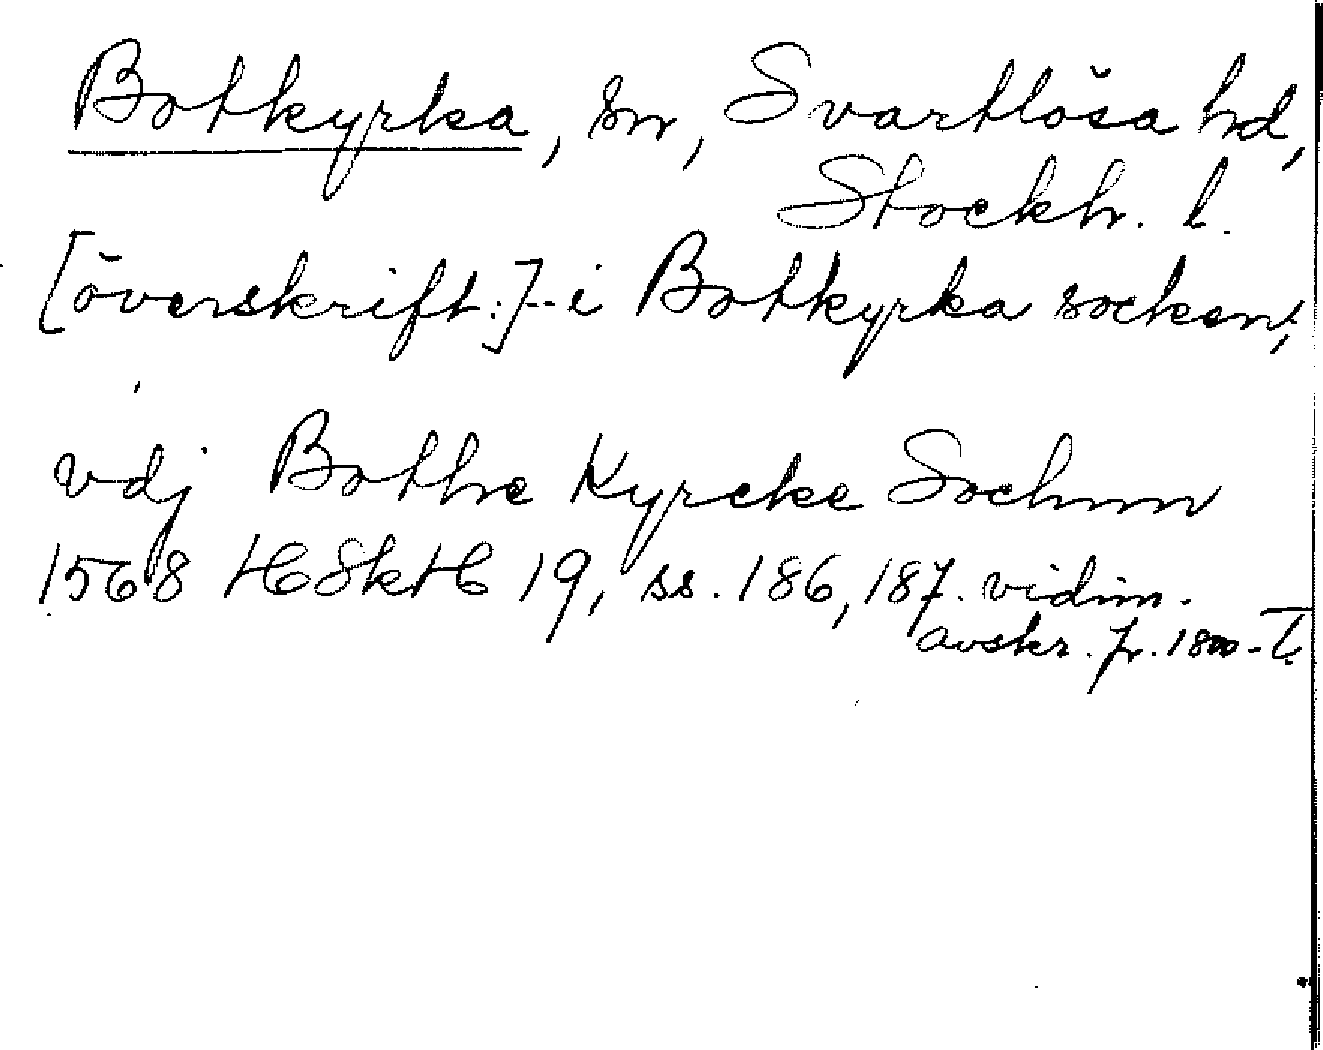 Botkyrka, sn, Svartlösa hd,
Stockh. l.
[överskrift:]-- i Botkyrka socken;
vdj Bothe Kyrcke Sochnn
1568 HSkH 19, ss. 186, 187. vidim.
avskr. fr. 1800-T.